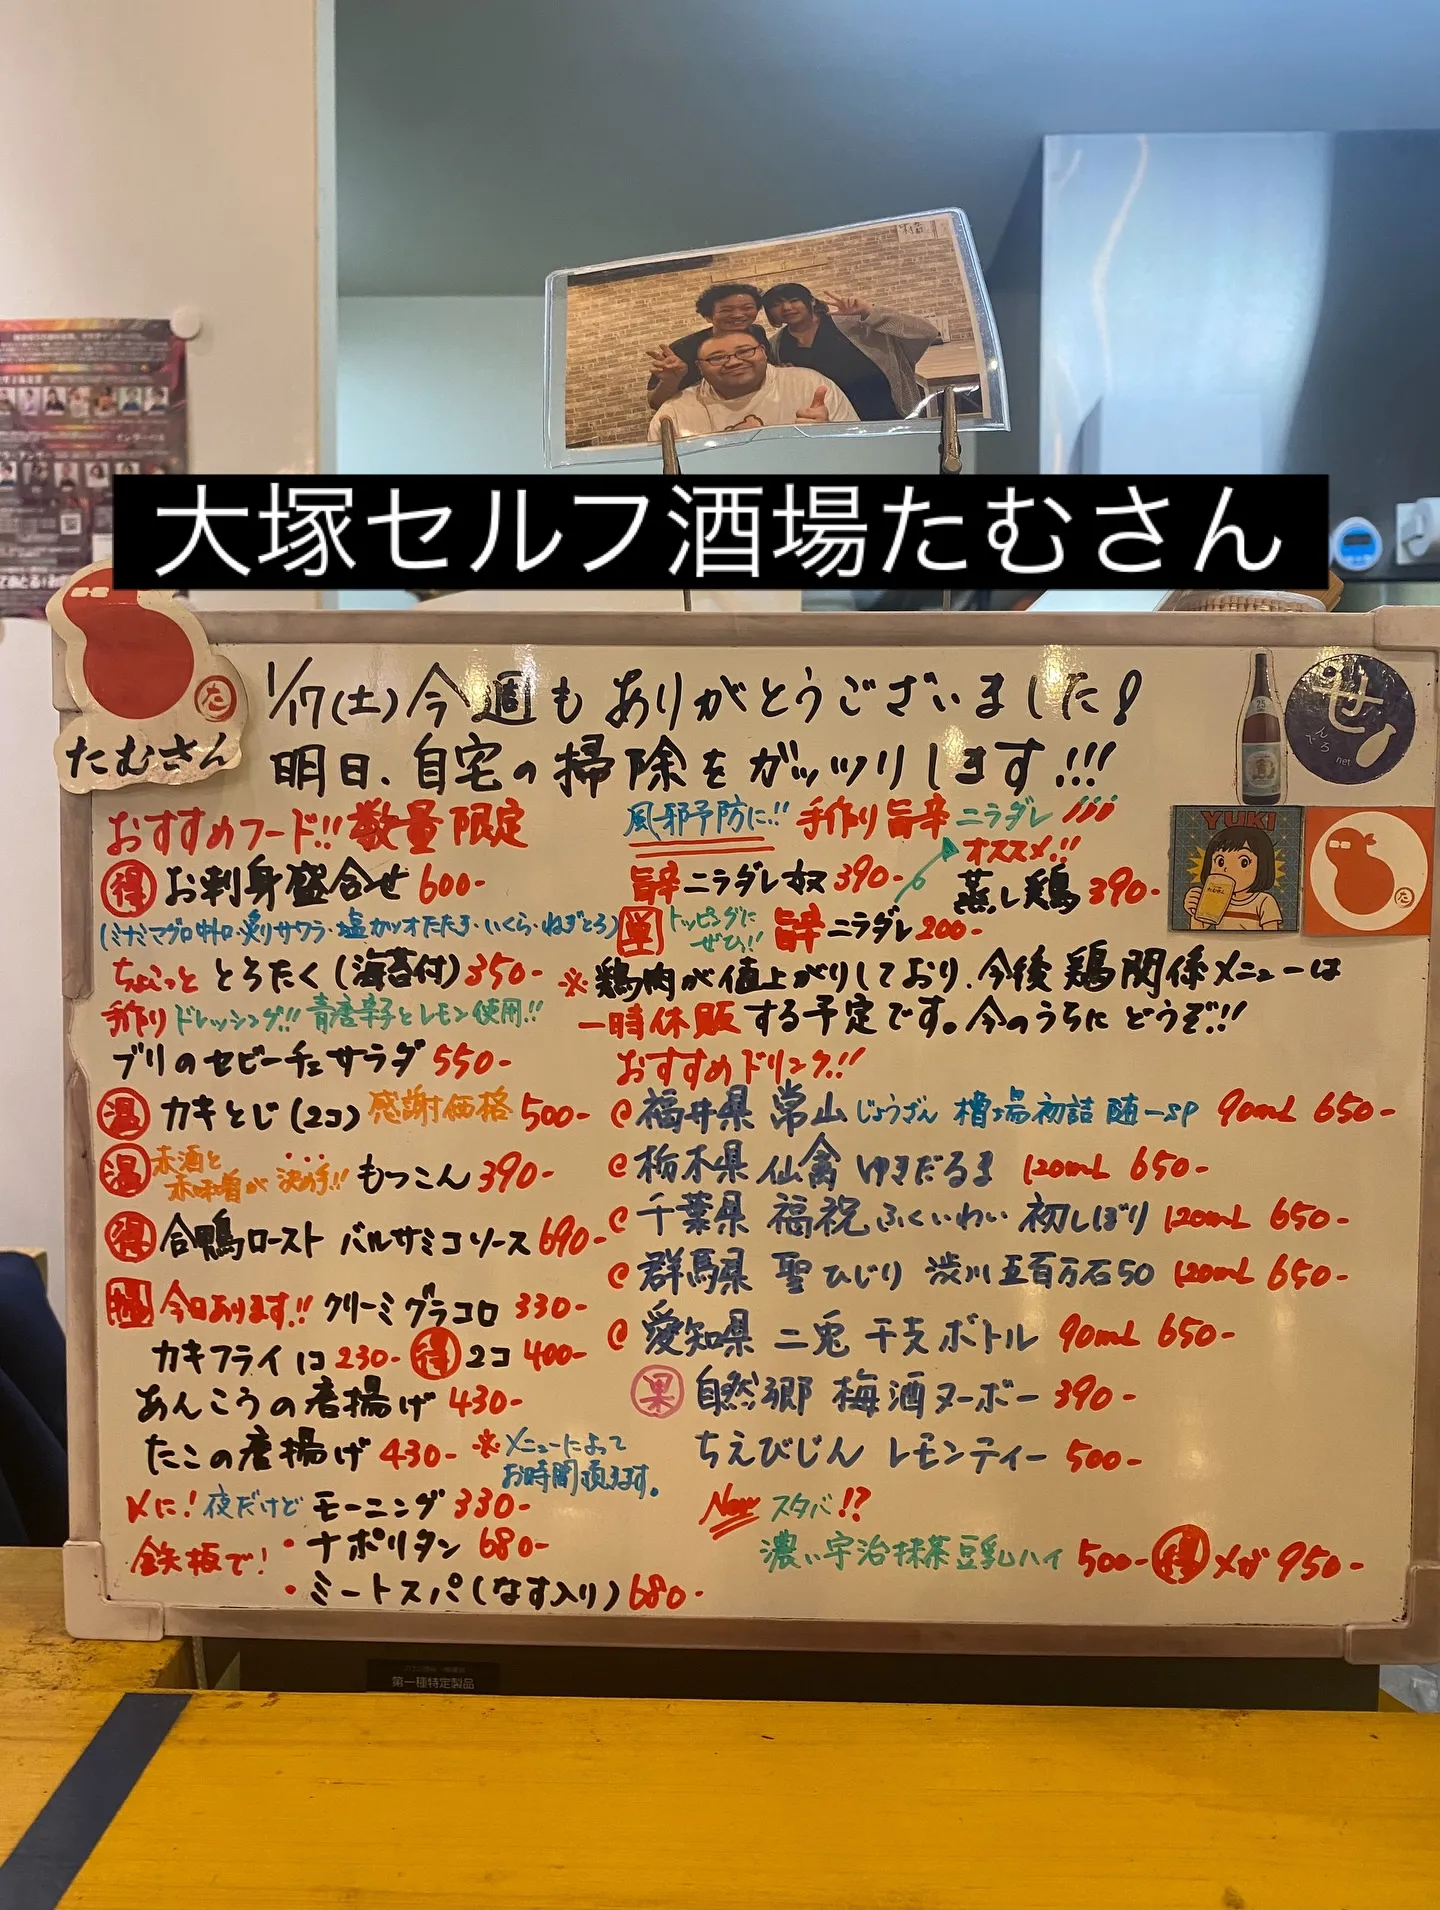 大塚セルフ酒場たむさん
た
たむさん
1/17(土)今週もありがとうございました!
明日、自宅の掃除をガッツリします!!!
せ
んべろ
net
25
YUKI
おすすめフード!!数量限定
得 お刺身盛合せ 600-
(ミナミマグロ中トロ・炙りサワラ・塩カツオたたき・いくら・ねぎとろ)
ちょこっと とろたく(海苔付)350-
手作りドレッシング!!青唐辛子とレモン使用!!
ブリのセビーチェサラダ 550-
温 カキとじ(2コ)感謝価格 500-
温 赤酒と
赤味噌が決め手!! もつこん 390-
得 合鴨ロースト バルサミコソース 690-
今日あります!! クリーミグラコロ 330-
カキフライ 1コ 230- 得 2コ 400-
あんこうの唐揚げ 430-
たこの唐揚げ 430-
※メニューによって
お時間頂きます。
〆に!夜だけど モーニング 330-
鉄板で!
・ナポリタン 680-
・ミートスパ(なす入り)680-
風邪予防に!! 手作り旨辛ニラダレ!!!
オススメ!!
旨辛ニラダレ奴 390-
蒸し鶏 390-
単 トッピングに
ぜひ!! 旨辛ニラダレ 200-
※鶏肉が値上がりしており、今後鶏関係メニューは
一時休販する予定です。今のうちにどうぞ!!
おすすめドリンク!!
福井県 常山 じょうざん 槽場初詰 随一SP 90mL 650-
栃木県 仙禽 ゆきだるま 120mL 650-
千葉県 福祝 ふくいわい 初しぼり 120mL 650-
群馬県 聖 ひじり 渋川五百万石50 120mL 650-
愛知県 二兎 干支ボトル 90mL 650-
果 自然郷 梅酒ヌーボー 390-
ちえびじん レモンティー 500-
New スタバ!?
濃い宇治抹茶豆乳ハイ 500- 得 メガ 950-
第一種特定製品